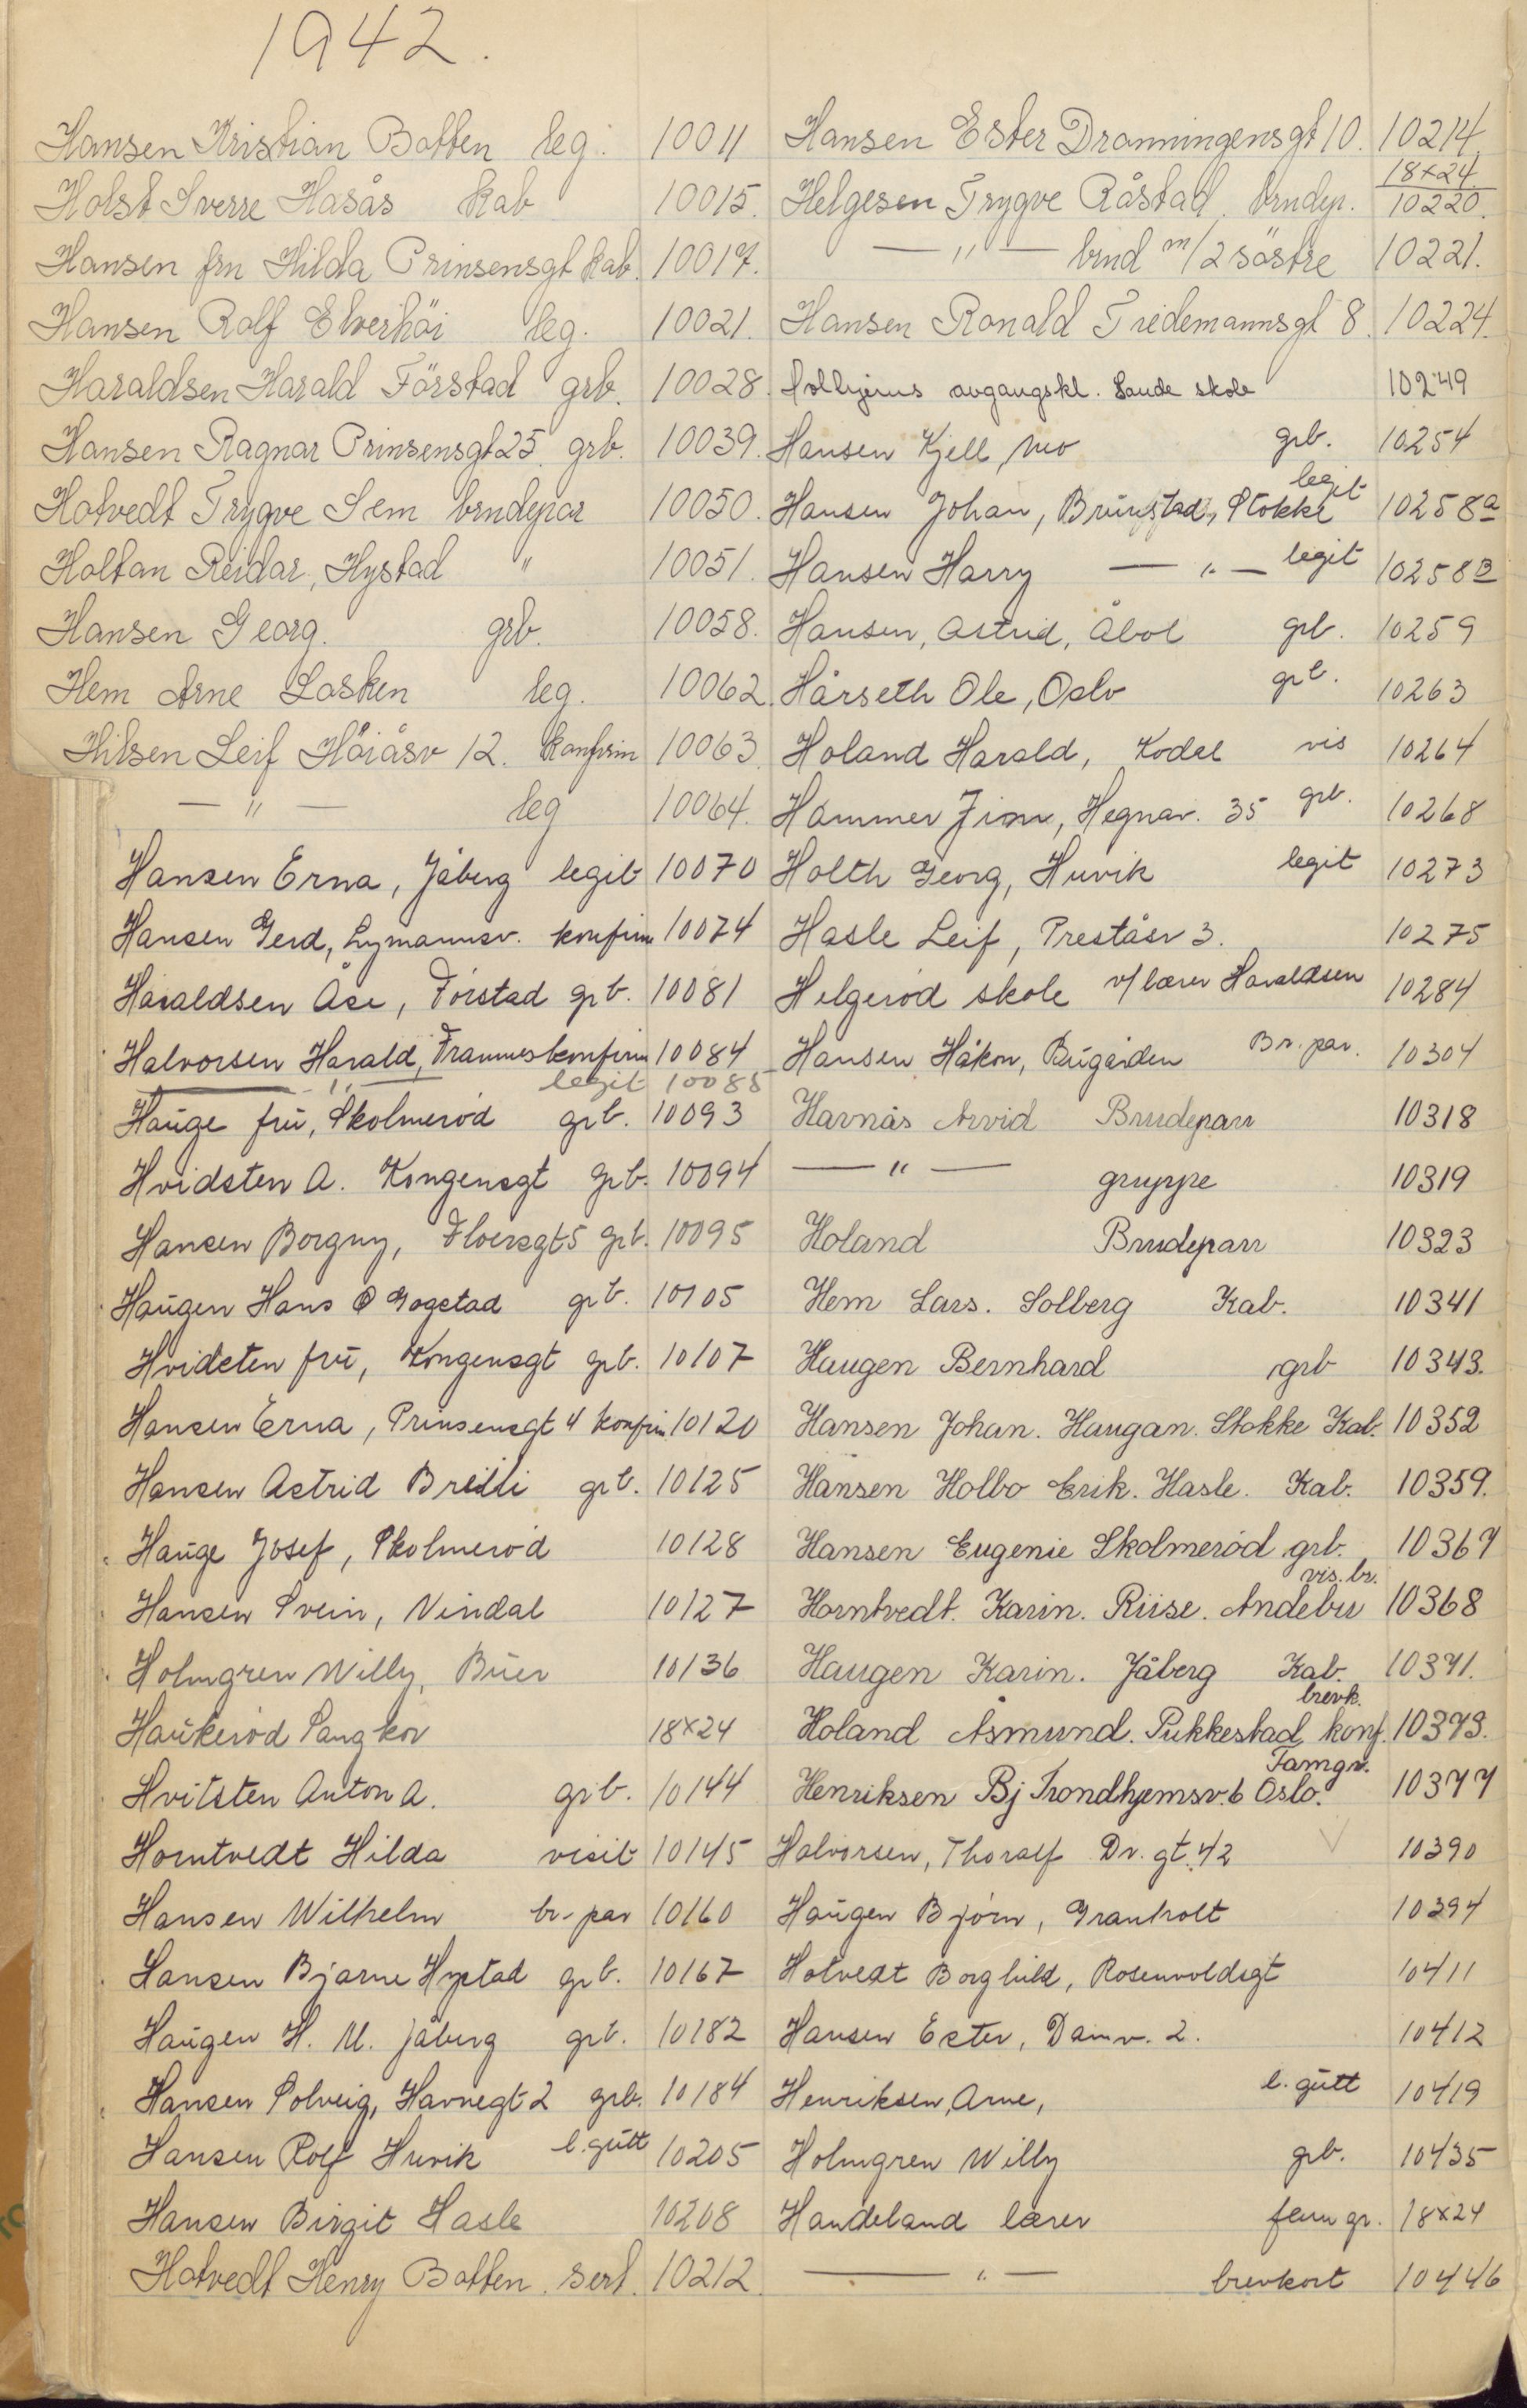 1942.
Hansen Kristian Botten leg. 10011
Holst Sverre Hasås kab 10015.
Hansen fru Hilda Prinsensgt kab. 10017.
Hansen Rolf Elverhöi leg. 10021.
Haraldsen Harald Förstad grb. 10028.
Hansen Ragnar Prinsensgt 25. grb. 10039.
Hotvedt Trygve Sem brudepar 10050.
Holtan Reidar, Hystad " 10051.
Hansen Georg. grb. 10058.
Hem Arne Lasken leg. 10062.
Hilsen Leif Höiåsv 12. konfirm 10063.
— " — leg 10064.
Hansen Erna, Jåberg legit 10070
Hansen Gerd, Lymannsv. konfirm 10074
Haraldsen Åse, Förstad grb. 10081
Halvorsen Harald, Framnes konfirm 10084
— " — legit 10085
Hauge fru, Skolmeröd grb. 10093
Hvidsten A. Kongensgt grb. 10094
Hansen Borgny, Floersgt 5 grb. 10095
Haugen Hans O Gogstad grb. 10105
Hvidsten fru, Kongensgt grb. 10107
Hansen Erna, Prinsensgt 4 konfirm. 10120
Hansen Astrid Breili grb. 10125
Hauge Josef, Skolmeröd 10128
Hansen Svein, Vindal 10127
Holmgren Willy, Buer 10136
Haukeröd Sangkor 18x24
Hvitsten Anton A. grb. 10144
Horntvedt Hilda visit 10145
Hansen Wilhelm br-par 10160
Hansen Bjarne Hystad grb. 10167
Haugen H. M. Jåberg grb. 10182
Hansen Solveig, Havnegt 2 grb. 10184
Hansen Rolf Huvik l. gutt 10205
Hansen Birgit Hasle 10208
Hotvedt Henry Botten. sert. 10212.
Hansen Ester Dronningensgt 10. 10214.
18x24
Helgesen Trygve Råstad. brudep. 10220.
— " — brud m/2 söstre 10221.
Hansen Ronald Tidemannsgt 8. 10224.
avgangskl. Sande skole 10249
Hansen Kjell, Mo grb. 10254
Hansen Johan, Brunstad, Stokke legit 10258a
Hansen Harry — " — legit 10258B
Hansen, Astrid, Åbol grb. 10259
Hårseth Ole, Oslo grb. 10263
Holand Harald, Kodal vis 10264
Hammer Finn, Hegnav. 35 grb. 10268
Holth Georg, Huvik legit 10273
Hasle Leif, Preståsv 3. 10275
Helgeröd skole v/ lærer Haraldsen 10284
Hansen Håkon, Bugården Br. par. 10304
Havnås Arvid Brudepar 10318
— " — gruppe 10319
Holand Brudepar 10323
Hem Lars. Solberg Kab. 10341
Haugen Bernhard grb 10343.
Hansen Johan. Haugan. Stokke Kab. 10352
Hansen Holbo Erik. Hasle. Kab. 10359.
Hansen Eugenie Skolmeröd grb. 10367
Horntvedt. Karin. Riise. Andebu vis. br. 10368
Haugen Karin. Jåberg Kab. 10371.
Holand Åsmund. Pukkestad konf. brevk. 10373.
Henriksen Bj Trondhjemsv. 6 Oslo. Famgr. 10377
Halvorsen, Thoralf Dr. gt. 42 10390
Haugen Björn, Granholt 10394
Hotvedt Borghild, Rosenvoldsgt 10411
Hansen Ester, Damv. 2. 10412
Henriksen, Arne, l. gutt 10419
Holmgren Willy grb. 10435
Handeland lærer fam gr. 18x24
— " — brevkort 10446